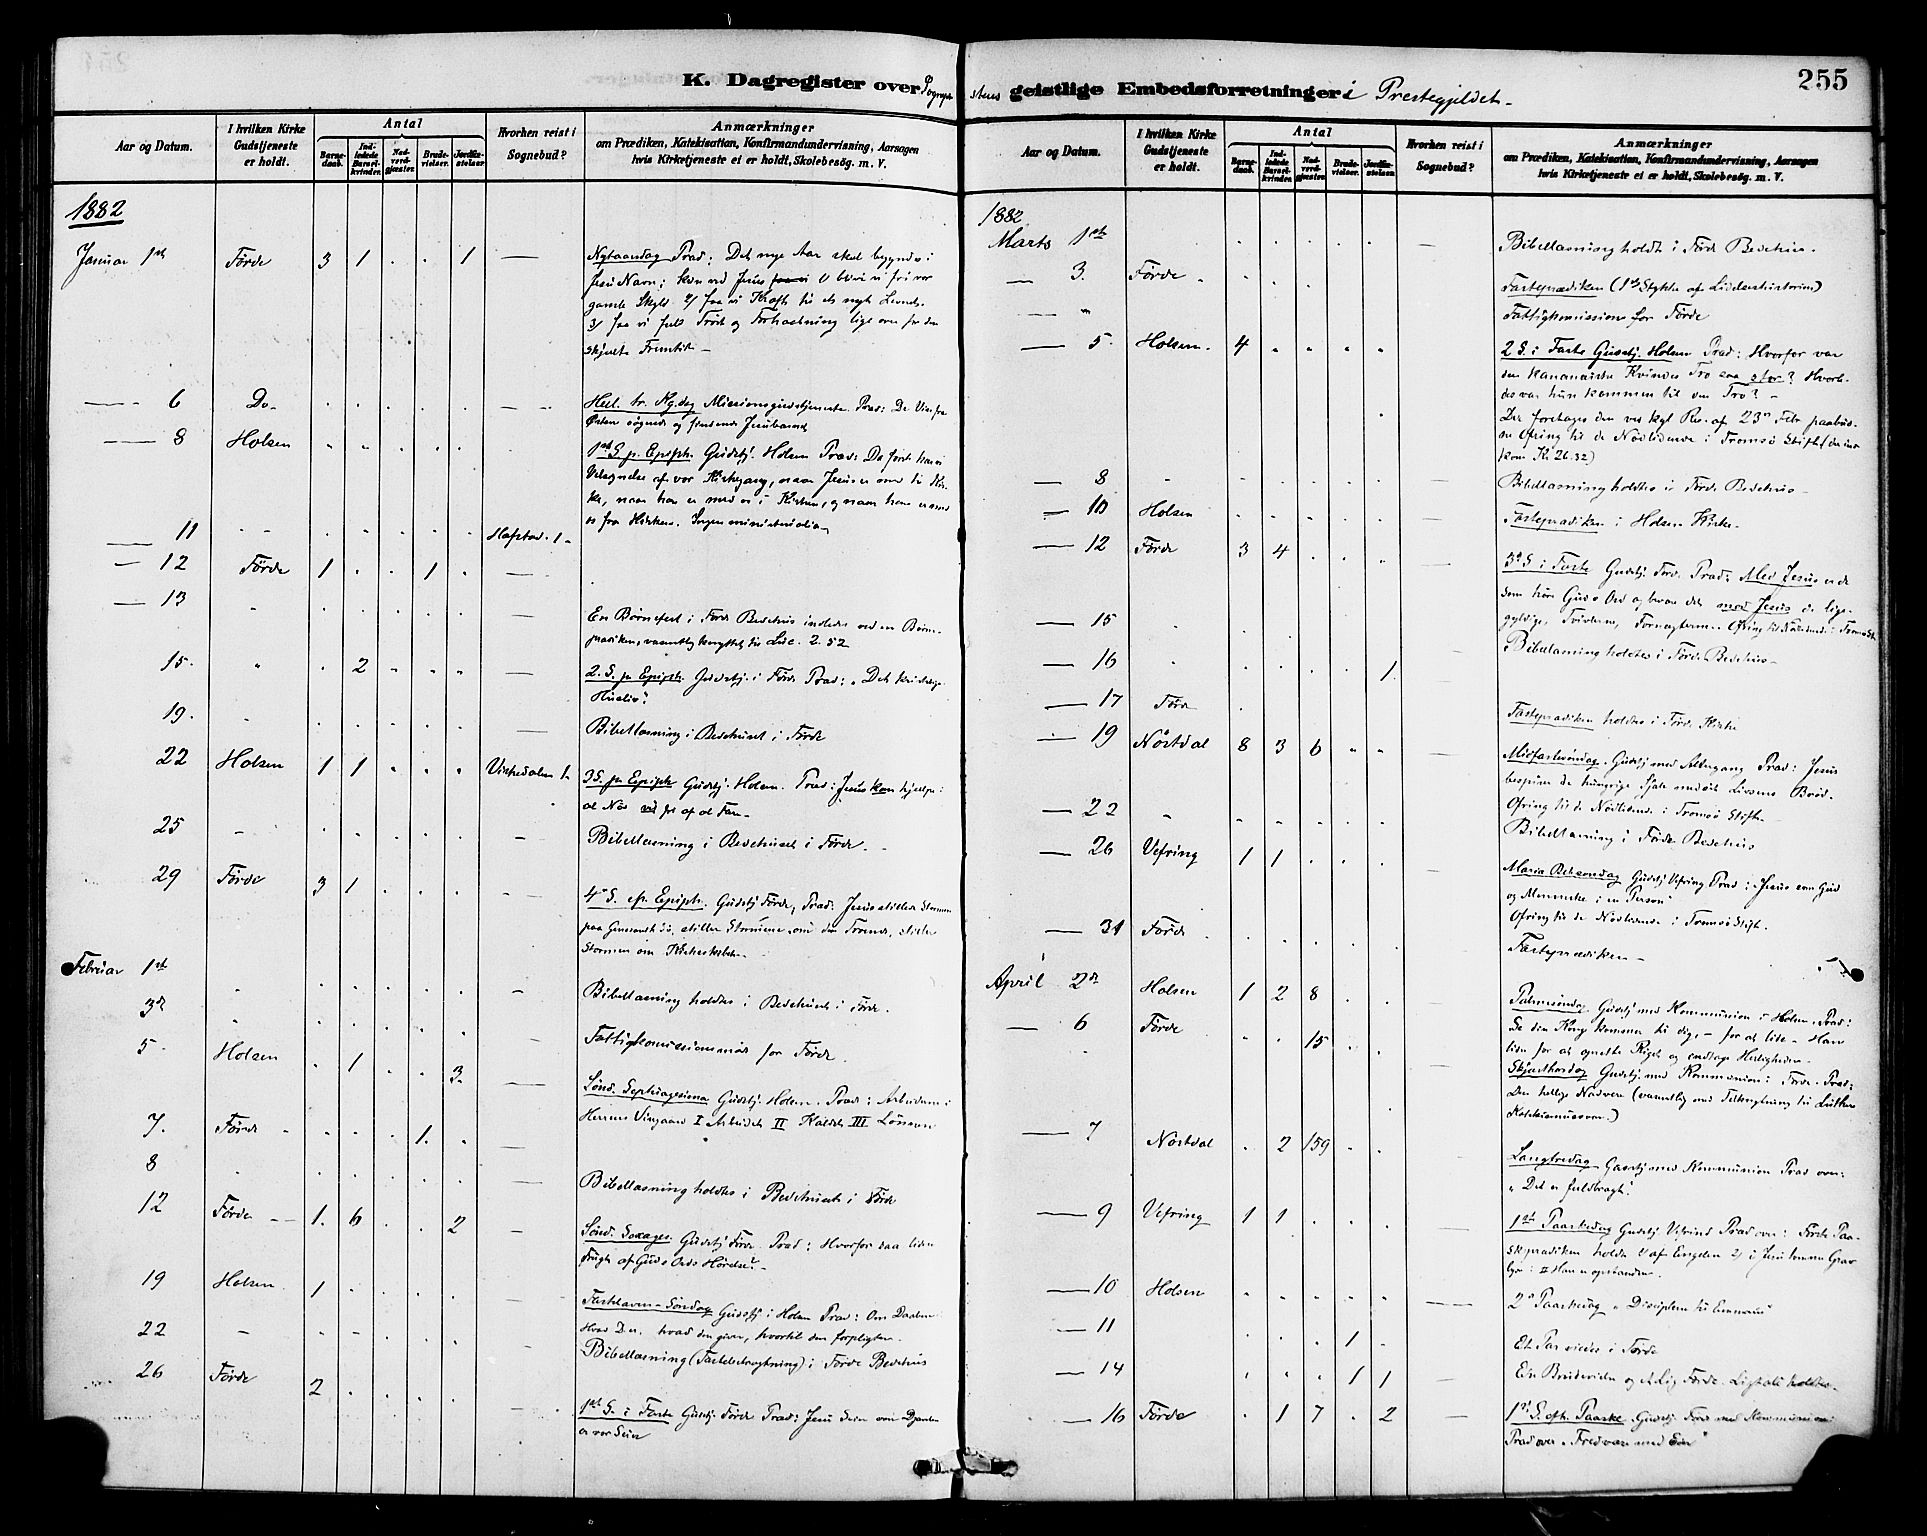 255
K. Dagregister over Sogneprestens geistlige Embedsforretninger i Prestegjeldet
Aar og Datum.
I hvilken Kirke Gudstjeneste er holdt.
Antal
Barnedaab.
Indledede Barselkvinder.
Nadverdgjæster.
Brudevielser.
Jordfæstelser.
Hvorhen reist i Sognebud?
Anmærkninger
om Prædiken, Katekisation, Konfirmandundervisning, Aarsagen
hvis Kirketjeneste ei er holdt, Skolebesøg. m. V.
1882
Januar 1st Förde 3 1 . . 1 — Nytaarsdag Præd: Det nye Aar skal begyndes i
Jesu Navn; kun ved Jesus 1) blive vi fri vor
gamle Skyld 2/ faa vi Kraft til et nyt Levnet
3/ faa vi fuld Tröst og Fortröstning lige over for den
skjulte Fremtid —
6 Do Hell. tr. Kg. dag Missionsgudstjeneste. Præd: De Vise fra
Østen søgende og findende Jesubarnet
8 Holsen 1st S. p. Epiph. Gudstj. Holsen Præd: Da först have vi
Velsignelse af vor Kirkegang, naar Jesus er med til Kir-
ke, naar han er med os i Kirken, og naar han er med
os fra Kirken.
11 Hafstad 1
12 Förde 1 . . 1 .
13 En Børnefest i Förde Bedehus indledes ved en Børne-
prædiken, væsentlig knyttet til Luc. 2. 52
15. 2 2. S. p. Epiph. Gudstj. i Förde Præd: "Det kristelige
Husliv"
19. Bibellæsning i Bedehuset i Förde
22 Holsen 1 1 . . . 3 S. p. Epiph. Gudstj. Holsen. Præd: Jesus kan hjelpe i
al Nød
25 Bibellæsning i Bedehuset i Förde.
29 Förde 3 1 4de S. p. Epiph. Gudstj Förde, Præd: Jesus stillede Stormen
paa Genesareth Sö, stiller Stormene om den Troende, stiller
Stormen om Kirkeskibet
Februar 1st Bibellæsning holdtes i Bedehuset i Förde.
3de Fattigkomissionsmöde for Förde.
5. Holsen . 1 . . 3. Sönd. Septuagesima Gudstj. Holsen. Præd: Arbeidern i
Herrens Vingaard I Arbeidet II Kaldet III Lönnen
7. Förde 1.
8 Bibellæsning holdtes i Bedehuset i Förde
12 Förde 1. 6 . . 2 Sönd. Sexages. Gudstj Förde. Præd: Hvorfor saa liden
Frugt af Guds Ords Hörelse? —
19 Holsen 1 Fastelavns-Søndag Gudstj i Holsen Præd: Om Daaben
Hvad D. er. hvad den giver, hvortil den forpligter.
22 Bibellæsning (Fastebetragtning) i Förde Bedehus
26 Förde 2 1st S. i Faste Gudstj Förde Præd: Jesu Seier over Djævlen
er vor Seier
Aar og Datum.
I hvilken Kirke Gudstjeneste er holdt.
Antal
Barnedaab.
Indledede Barselkvinder.
Nadverdgjæster.
Brudevielser.
Jordfæstelser.
Hvorhen reist i Sognebud?
Anmærkninger
om Prædiken, Katekisation, Konfirmandundervisning, Aarsagen
hvis Kirketjeneste ei er holdt, Skolebesøg. m. V.
1882
Marts 1st Bibellæsning holdt i Förde Bedehus.
3. Förde Fasteprædiken (1ste Stykke af Lidelseshistorien)
" Fattigkomission for Förde
5. Holsen. 4 2 S. i Faste Gudstj. Holsen Præd: Hvorfor var
den Kananæiske Kvindes Tro saa stor? Hvorle-
des var hun kommen til den Tro? —
Der foretoges den ved kgl Res. af 23de Febr paabud-
ne Ofring til de Nødlidende i Tromsö Stift (der ind-
kom Kr 26.32)
8 Bibellæsning holdtes i Förde Bedehus
10 Holsen Fasteprædiken i Holsen Kirke.
12 Förde 3 4 3d S i Faste Gudstj. Förde Præd: Med Jesus ere de
som höre Guds Ord og bevare det, mod Jesus de lige-
gyldige, Tvivlerne, Fornegterne. Ofring til Nødlidende i Tromsö St.
15 Bibelæsning holdtes i Förde Bedehus
16 1.
17 Förde Fasteprædiken holdes i Förde Kirke
19 Nöstdal 8 3 6 Midfastesöndag. Gudstj med Altergang Præd: Jesus
bespiser de hungrige Sjæle med Livsens Bröd.
Ofring til de Nødlidende i Tromsö Stift
22 Bibellæsning i Förde Bedehus
26 Vefring 1 1 Mariæ Bebsöndag Gudstj Vefring Præd: "Jesus som Gud
og Menneske i en Person"
Ofring til de Nødlidende i Tromsö Stift.
31 Förde Fasteprædiken
April 2de Holsen 1 2 8 Palmesöndag Gudstj med Kommunion i Holsen. Præd:
Se din Konge kommer til dig, — for at lide — Han
lider for at oprette Riget og indtage Herligheden
6 Förde 15 Skjærthorsdag Gudstj. med Kommunion i Förde. Præd:
Den hellige Nadvere (væsentlig med Tilknytning til Luthers
Katekismus)
7 Nöstdal . 2 159 Langfredag Gudstj med Kommunion Præd over:
"Det er fuldbragt".
9 Vefring 1 1 1st Paaskedag Gudstj. Vefring Præd over: Förste Paa-
skeprædiken holdt 1/ af Engelen 2/ i Jesu tomme Grav
10 Holsen 2d Paaskedag "Disciplene til Emmaus"
11 1 Et Par viedes i Förde
14 1 1 En Brudevielse og et Lig Förde. Ligtale holdtes.
16 Förde . 1 7 . 2 1st S. eft. Paaske Gudstj Förde med Kommunion
Præd over "Fred være med Eder"